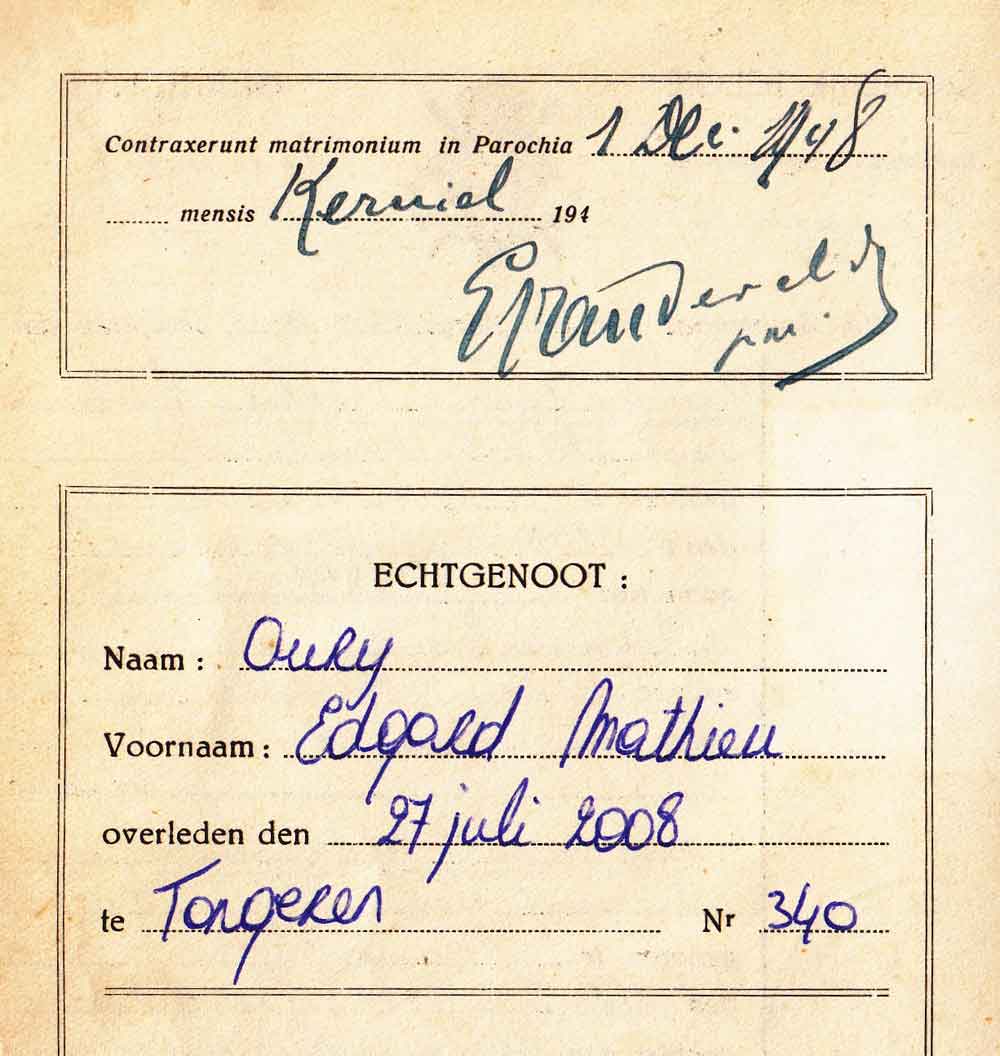 Contraxerunt matrimonium in Parochia 1 Dec. 1948
mensis Kerniel 194
ECHTGENOOT :
Naam : Oury
Voornaam : Edgard Mathieu
overleden den 27 juli 2008
te Tongeren Nr 340